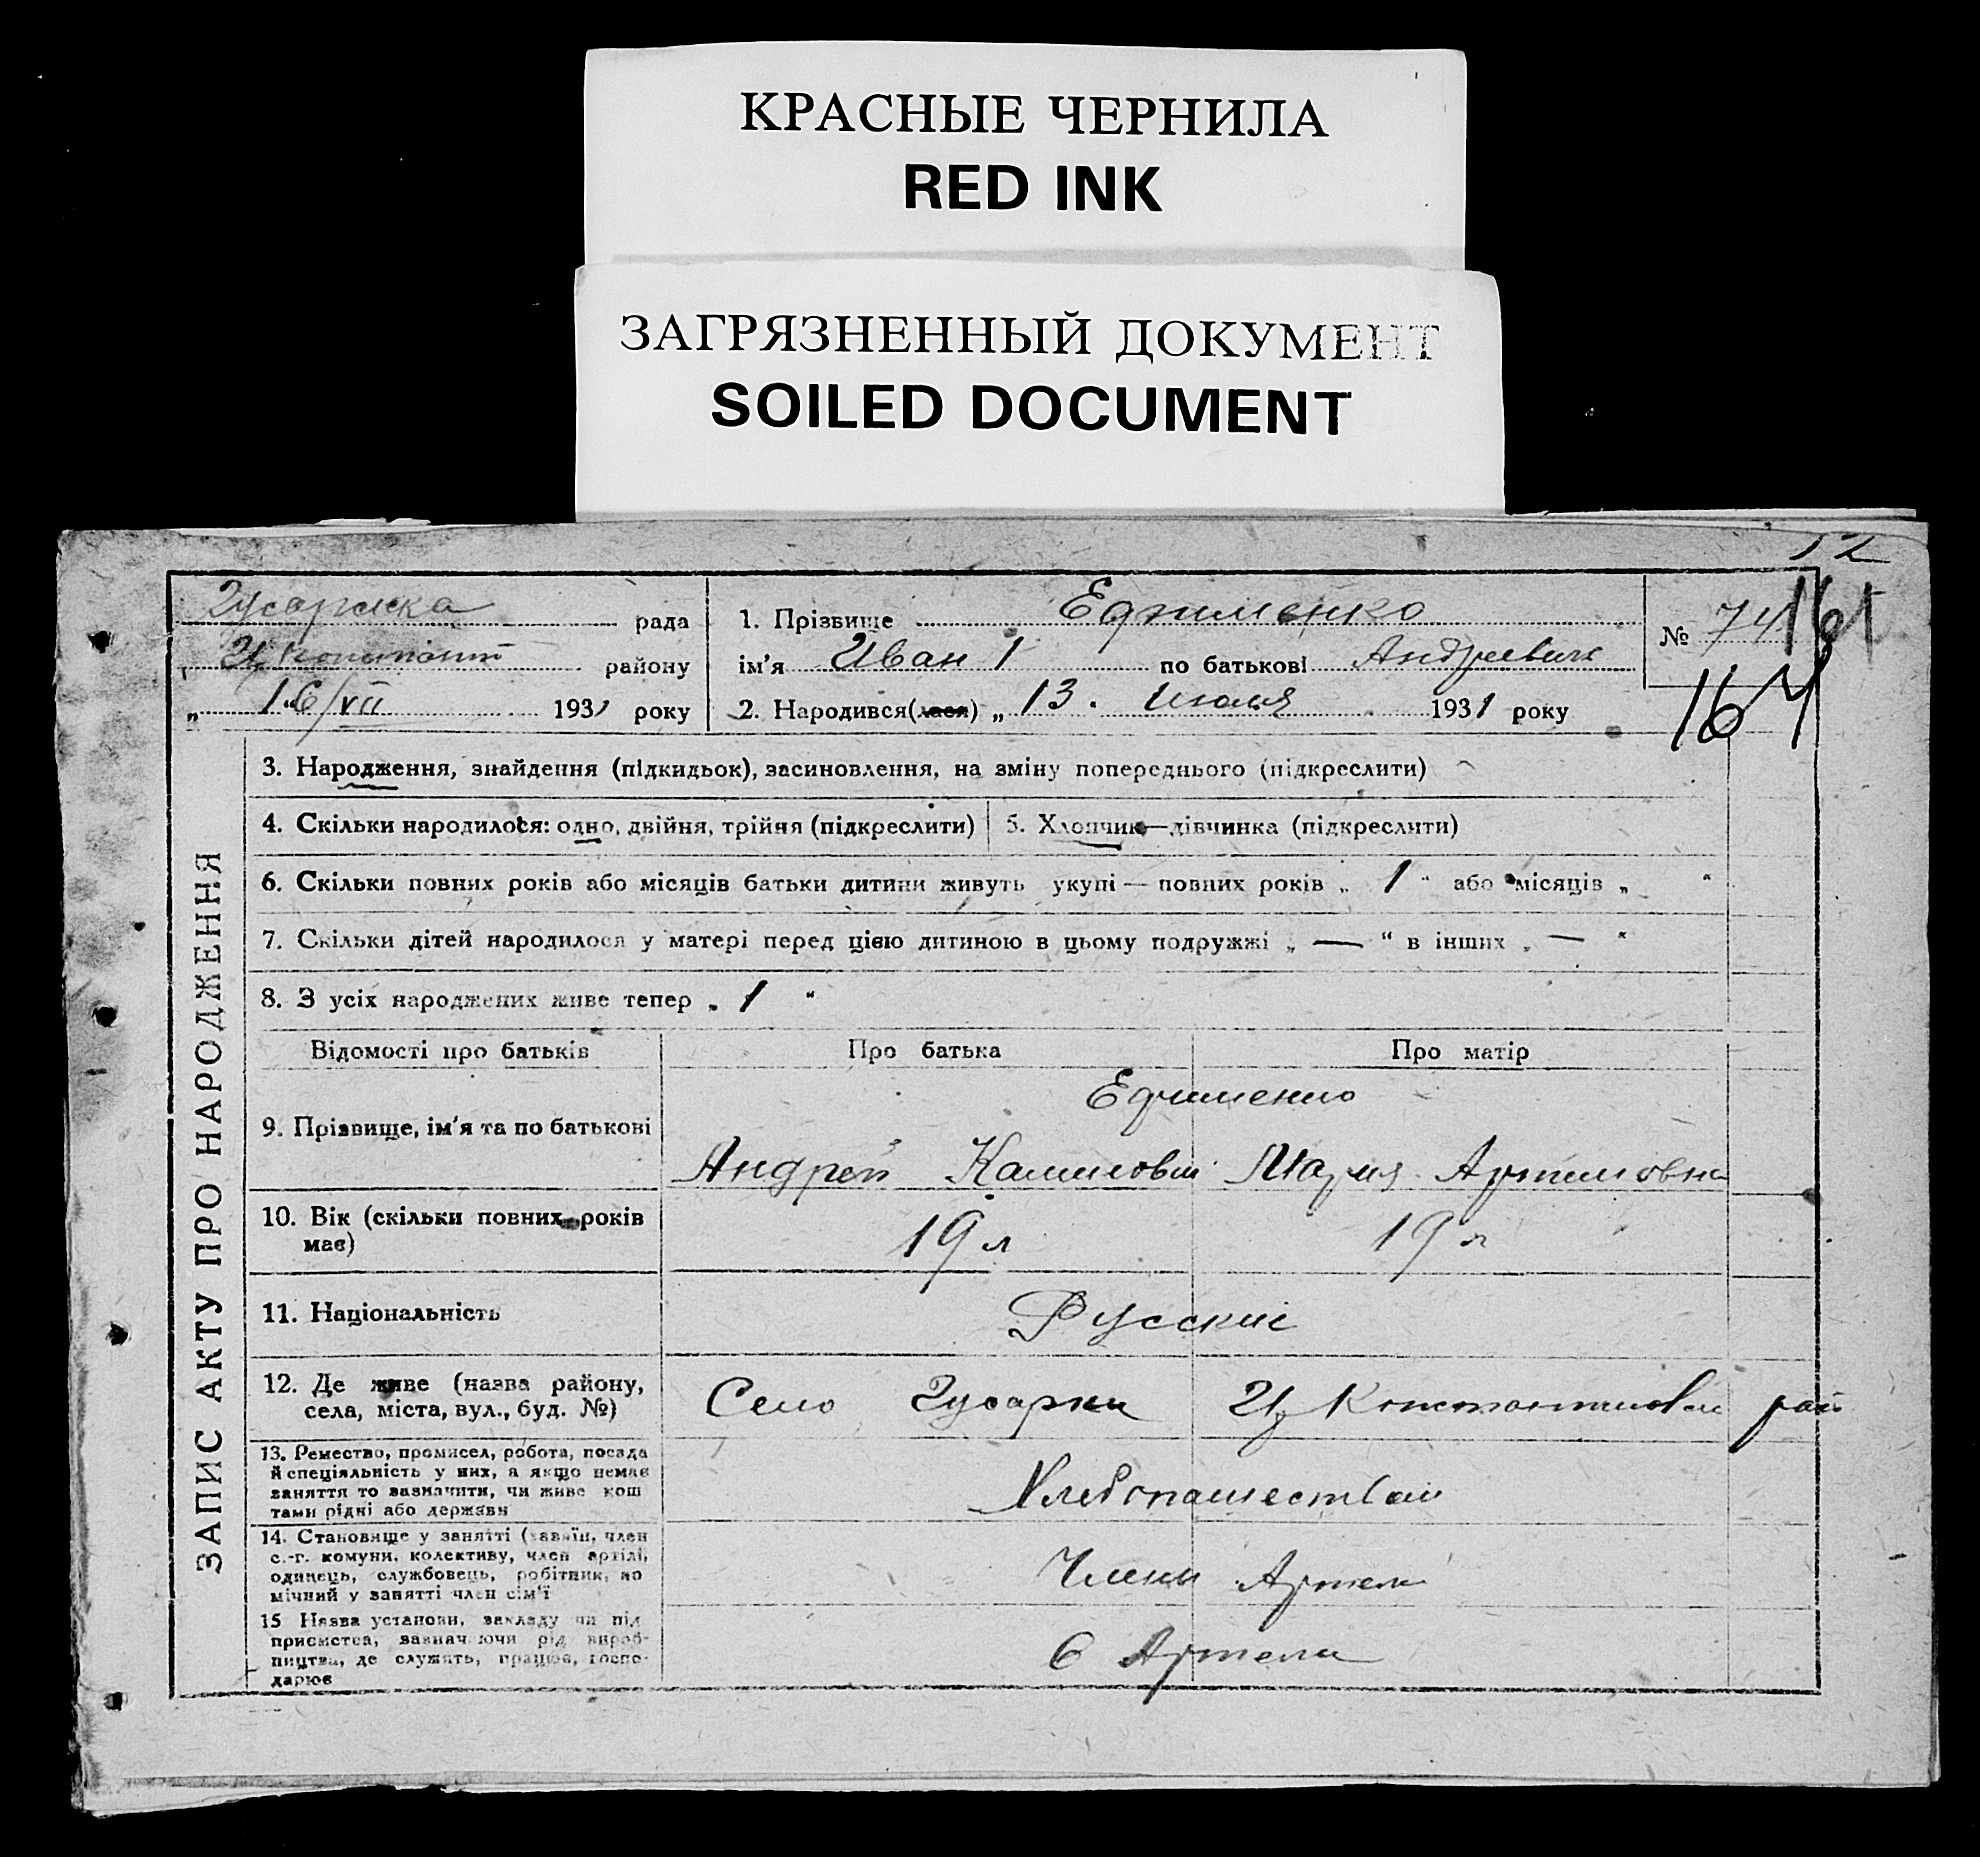 КРАСНЫЕ ЧЕРНИЛА
RED INK
ЗАГРЯЗНЕННЫЙ ДОКУМЕНТ
SOILED DOCUMENT
12
Гусарська рада
Ц Констант району
„ 16/VII 1931 року
1. Прізвище Ефименко
ім'я Иван по батькові Андреевич
2. Народився(лася) „ 13. Июля 1931 року
№ 74
161
164
ЗАПИС АКТУ ПРО НАРОДЖЕННЯ
3. Народження, знайдення (підкидьок), засиновлення, на зміну попереднього (підкреслити)
4. Скільки народилося: одно, двійня, трійня (підкреслити) 5. Хлопчик—дівчинка (підкреслити)
6. Скільки повних років або місяців батьки дитини живуть укупі — повних років „ 1 “ або місяців „ “
7. Скільки дітей народилося у матері перед цією дитиною в цьому подружжі „ — “ в інших „ — “
8. З усіх народжених живе тепер „ 1 “
Відомості про батьків Про батька Про матір
9. Прізвище, ім'я та по батькові
Ефименко
Андрей Мария Артимовна
10. Вік (скільки повних років
має)
19 л 19 л
11. Національність
Русские
12. Де живе (назва району,
села, міста, вул., буд. №)
Село Гусарки Ц Константиновск рай
13. Ремество, промисел, робота, посада
й спеціяльність у них, а якщо немає
заняття то зазначити, чи живе кош
тами рідні або держави
Хлебопашеством
14. Становище у занятті (хазяїн, член
с.-г. комуни, колективу, член артілі,
одинець, службовець, робітник, по
мічний у занятті член сім'ї
Члены Артели
15 Назва установи, закладу чи під
приємства, зазначаючи рід вироб-
ництва, де служить, працює, госпо-
дарює
В Артели